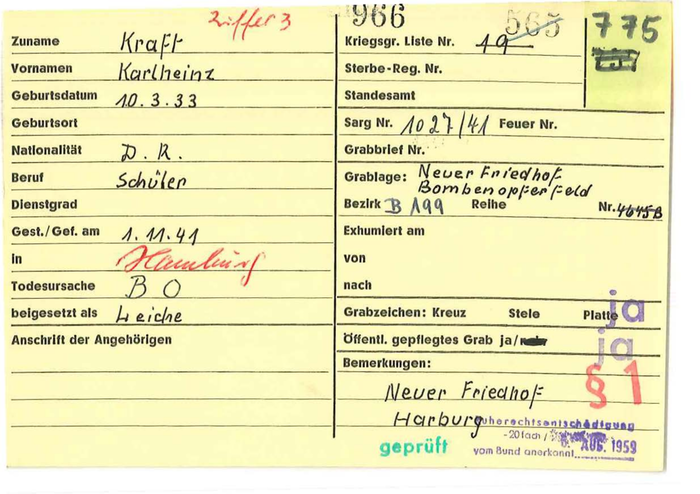 Ziffer 3
966
565
775
Zuname Kraft
Kriegsgr. Liste Nr. 19
Vornamen Karlheinz
Sterbe-Reg. Nr.
Geburtsdatum 10.3.33
Standesamt
Geburtsort
Sarg Nr. 1027/41 Feuer Nr.
Nationalität D.R.
Grabbrief Nr.
Beruf Schüler
Grablage: Neuer Friedhof
Bombenopferfeld
Dienstgrad
Bezirk B 199 Reihe Nr. 4645B
Gest./Gef. am 1.11.41
Exhumiert am
in Hamburg
von
Todesursache B O
nach
beigesetzt als Leiche
Grabzeichen: Kreuz Stele Platte ja
Anschrift der Angehörigen
Öffentl. gepflegtes Grab ja/ ja
Bemerkungen: § 1
Neuer Friedhof
Harburg
geprüft
Ruherechtsentschädigung
-20fach/
AUG. 1959
vom Bund anerkannt